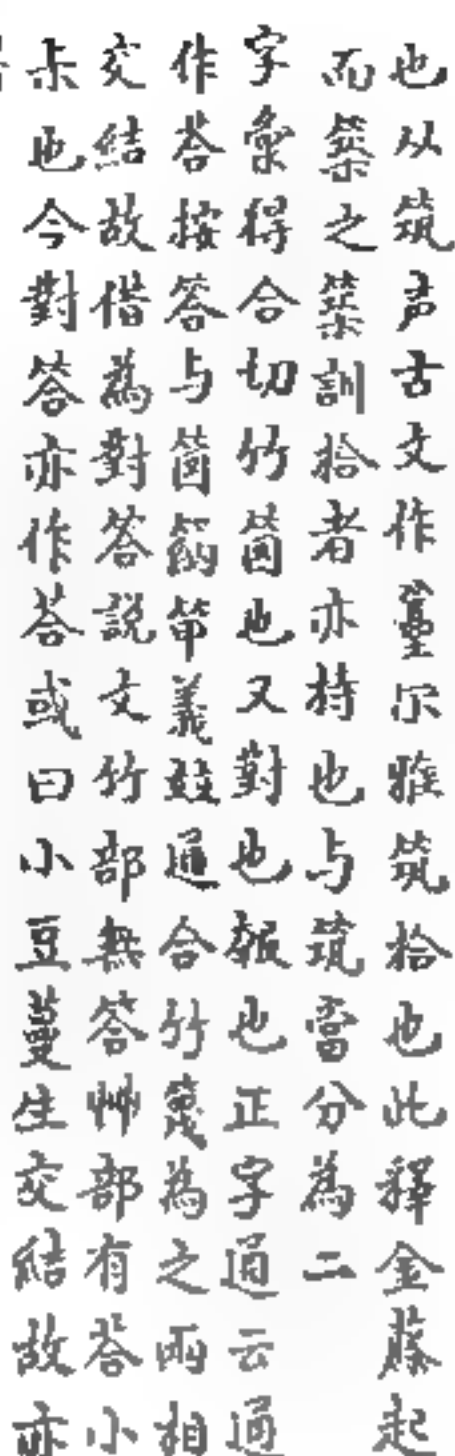 也从筑声古文作𡔍尔雅筑拾也此釋金藤起
而築之築訓拾者亦持也与筑當分為二
字彙得合切竹箇也又對也報也正字通云通
作荅按答与箇䈫笚義竝通合竹篾為之兩相
交結故借為對答說文竹部無答艸部有荅小
尗也今對答亦作荅或曰小豆蔓生交結故亦